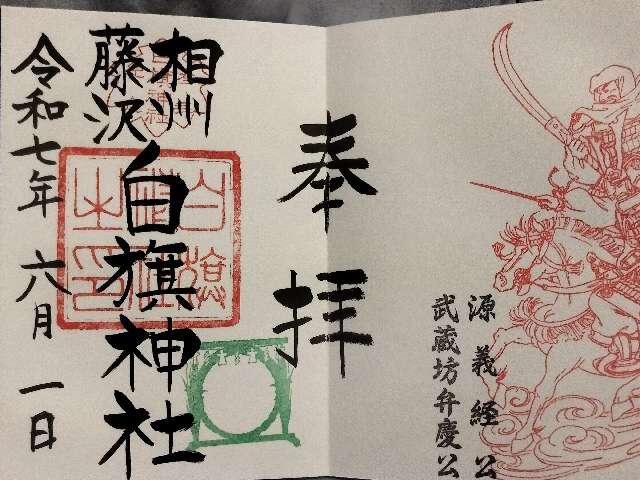 源義経公
武蔵坊弁慶公
奉拝
相州
藤沢
白旗神社
令和七年 六月 一日